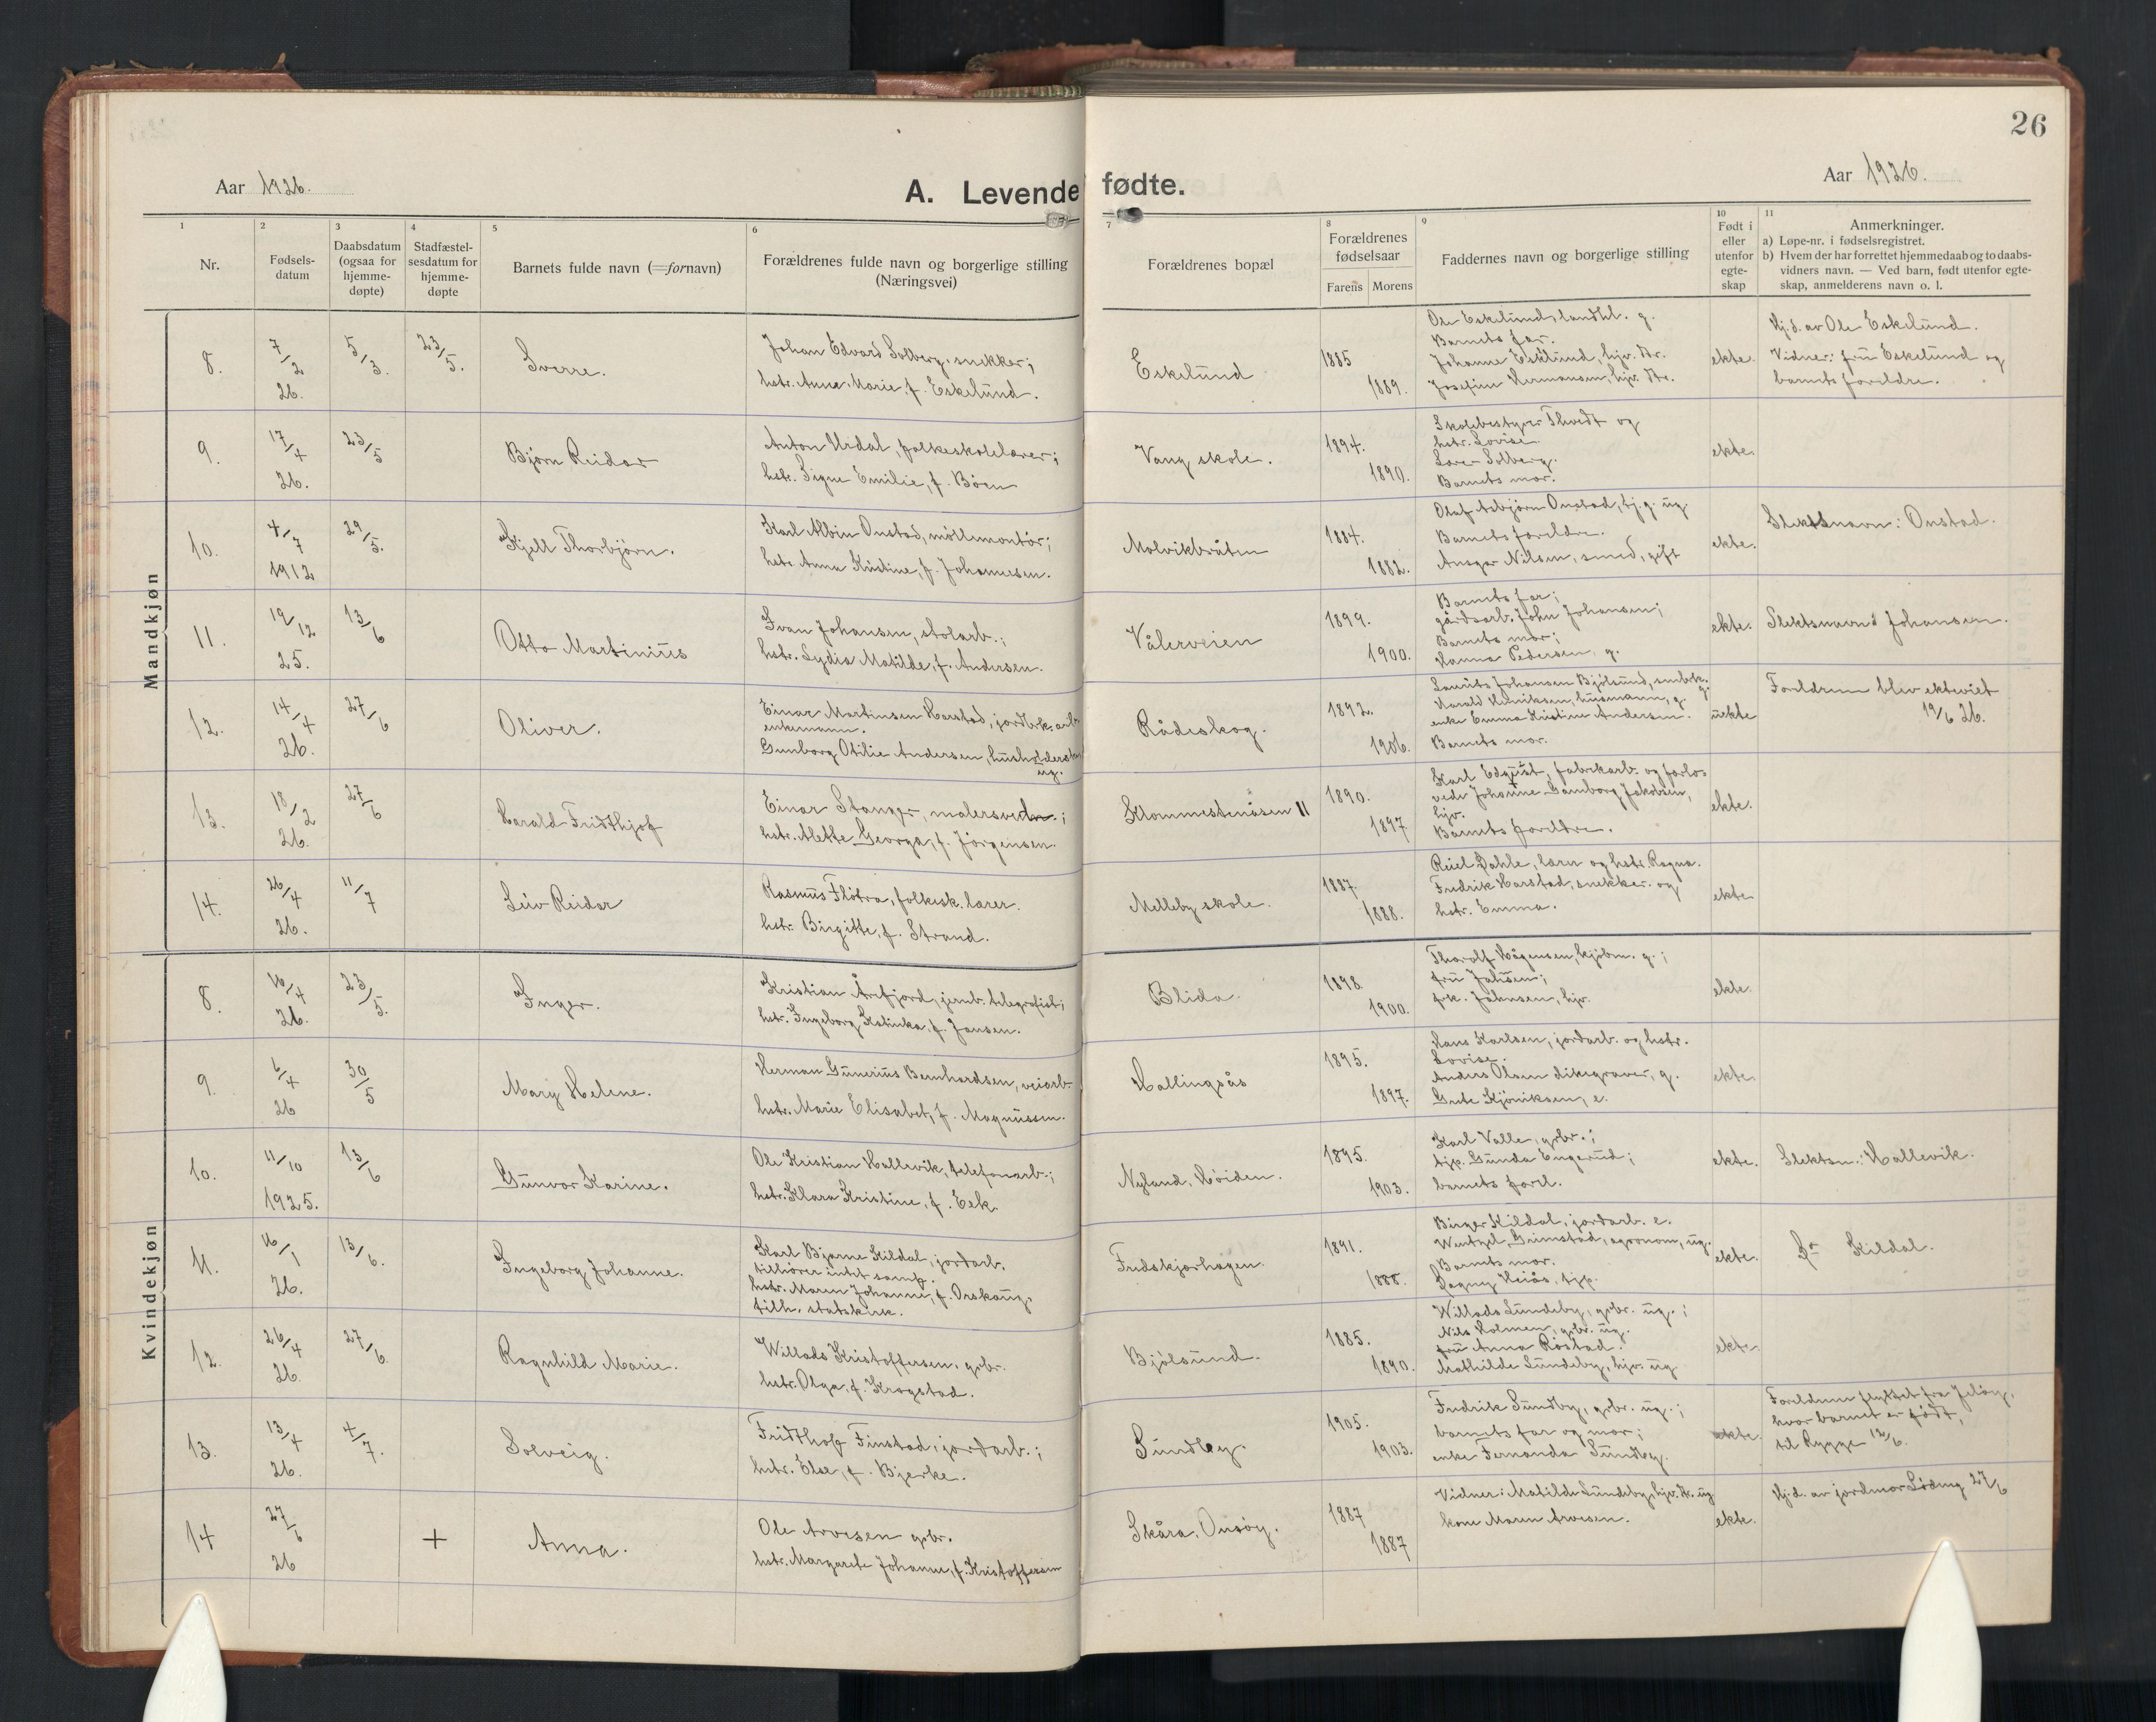 26
Aar 1926.
A. Levende fødte.
Aar 1926.
1 2 3 4 5 6 7 8 9 10 11
Nr.
Fødsels-
datum
Daabsdatum
(ogsaa for
hjemme-
døpte)
Stadfæstel-
sesdatum for
hjemme-
døpte
Barnets fulde navn (=fornavn)
Forældrenes fulde navn og borgerlige stilling
(Næringsvei)
Forældrenes bopæl
Forældrenes
fødselsaar
Farens Morens
Faddernes navn og borgerlige stilling
Født i
eller
utenfor
egte-
skap
Anmerkninger.
a) Løpe-nr. i fødselsregistret.
b) Hvem der har forrettet hjemmedaab og to daabs-
vidners navn. — Ved barn, født utenfor egte-
skap, anmelderens navn o. l.
Mandkjøn
8.
7/2
26.
5/3.
23/5.
Sverre.
Johan Edvard Solberg, snekker;
hstr. Anna Marie, f. Eskelund.
Eskelund
1885
1889.
Ole Eskelund, landhl. g.
Barnets far.
Johanne Eskelund, hjv. Str.
Josefine Hermansen, hjv. Str.
ekte.
Hj.d. av Ole Eskelund.
Vidner: fru Eskelund og
barnets foreldre.
9.
17/4
26.
23/5
Bjørn Reidar
Anton Urdal, folkeskolelærer;
hstr. Signe Emilie, f. Böen
Vang skole.
1894.
1890.
Skolebestyrer Thvedt og
hstr. Lovise.
Lærer Solberg.
Barnets mor.
ekte.
10.
4/7
1912
29/5.
Kjell Thorbjørn.
Karl Albin Onstad, möllemontör;
hstr. Anna Kristine, f. Johannesen.
Molvikbråten
1884.
1882.
Olaf Asbjørn Onstad, tj.g. ug
Barnets foreldre.
Ansgar Nilsen, smed, gift
ekte.
Slektsnavn: Onstad.
11.
19/12
25.
13/6
Otto Martinius
Ivan Johansen, stolarb.;
hstr. Lydia Matilde, f. Andersen.
Vålerveien
1899.
1900.
Barnets far;
gårdsarb. John Johansen;
Barnets mor;
Hanna Pedersen, g.
ekte.
Slektsnavn: Johansen.
12.
14/4
26.
27/6
Oliver.
Einar Martinsen Harstad, jordbrk. arb.
enkemann.
Gunborg Otilie Andersen, husholderske,
ug.
Rådeskog.
1892.
1906.
Lauritz Johansen Bjölsund, snekk. g.
Harald Henriksen, husmann, g.
enke Emma Kristine Andersen.
Barnets mor.
uekte
Foreldrene blev ekteviet
19/6 26.
13.
18/2
26.
27/6
Harald Fridthjof
Einar Stanger, malersvend;
hstr. Alette Georga, f. Jörgensen.
Klommestenåsen II
1890.
1897
Karl Edquist, fabrikarb. og forlo-
vede Johanne Gamborg Jakobsen,
hjv.
Barnets foreldre.
ekte.
14.
26/4
26.
11/7
Leiv Reidar
Rasmus Flötra, folkesk. lærer.
hstr. Birgitte, f. Strand.
Melleby skole.
1887.
1888.
Reiel Dahle, lærer og hstr. Ragna.
Fredrik Harstad, snekker og
hstr. Emma.
ekte
Kvindekjøn
8.
16/4
26.
23/5.
Inger.
Kristian Årefjord, jernb. telegrafist;
hstr. Ingeborg Katinka, f. Jansen.
Blida.
1898.
1900.
Thorolf Hågensen, kjöbm. g.;
fru Jahnsen;
frk. Jahnsen, hjv.
ekte.
9.
6/4
26
30/5
Mary Helene.
Herman Gunerius Bernhardsen, veiarb.
hstr. Marie Elisabet, f. Magnussen.
Hallingsås
1895.
1897.
Hans Karlsen, jordarb. og hstr.
Lovise.
Anders Olsen dikegraver, g.
Grete Kjöniksen, e.
ekte.
10.
11/10
1925.
13/6
Gunvor Karine.
Ole Kristian Hallevik, telefonarb.;
hstr. Klara Kristine, f. Eek
Nyland, Høiden.
1895.
1903.
Karl Valle, grbr.;
tjp. Gunda Engerud;
barnets forel.
ekte.
Slektsn.: Hallevik.
11.
16/1
26.
13/6.
Ingeborg Johanne.
Karl Bjarne Kildal, jordarb.
tilhører intet samf.
hstr. Maren Johanne, f. Orskaug,
tilh. statskirk.
Fredskjærhagen.
1891.
1888.
Birger Kildal, jordarb. e.
Wentzel Grimstad, agronom, ug.
Barnets mor.
Dagny Heiås, tjp.
ekte.
Kildal.
12.
26/4
26.
27/6.
Ragnhild Marie.
Willads Kristoffersen, grbr.
hstr. Olga, f. Krogstad.
Bjölsund.
1885.
1890.
Willads Sundeby, grbr. ug.;
Nils Holmen, grbr. ug.
fru Anna Röstad.
Mathilde Sundeby, hjv. ug
ekte.
13.
13/4
26.
4/7.
Solveig.
Fridthof Finstad, jordarb.;
hstr. Else, f. Bjerke.
Sundby.
1905.
1903.
Fredrik Sundby, grbr. ug.;
barnets far og mor;
enke Fernanda Sundby.
ekte.
Foreldrene flyttet fra Jelöy,
hvor barnet er född,
til Rygge 12/6.
14
27/6
26
+
Anna.
Ole Arvesen grbr.
hstr. Margarete Johanne, f. Kristoffersen
Skåra, Onsöy.
1887
1887
Vidner: Matilde Sundeby, hjv. Str. ug
kone Maren Arvesen.
ekte.
Hj.d. av jordmor Söding 27/6